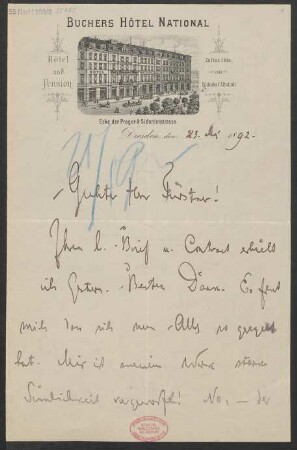 BUCHERS HÔTEL NATIONAL
Hôtel
und
Pension
Ecke der Prager & Sidonienstrasse.
Dresden, den 23. Mai 1892.
Geehrter Herr Förster!
Ihren l. Brief u. Contract erhielt
ich gestern. Besten Dank. Es freut
mich dass sich nun Alles so geregelt
hat. Mir ist meinem Werke starke
Sinnlichkeit vorgeworfen! No, – der